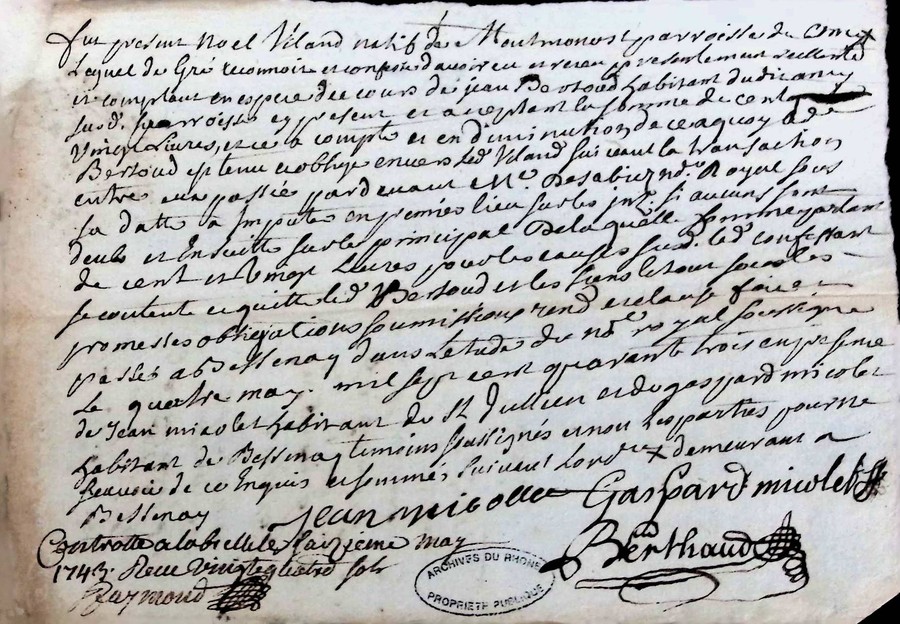 fut present Noel Viland natif de Montmonost parroisse de
Lequel de Gré reconnoit et confesse d'avoir eu et receu presentement reellemt
et comptant en espece de cours de jean Bertoud habitant dudit
susd. parroisse cy present et acceptant la somme de cent
vingt Livres, et ce a compte et en diminution de ce a quoy led
Bertoud est tenu et obligé envers led Viland suivant la transaction
entre eux passée pardevant Me. nore. Royal sous
sa datte a Imputer en premier lieu sur les int. si aucuns sont
deubs et Ensuitte sur le principal De laquelle somme partant
de cent et vingt Livres pour les causes susd. led confessant
se contente et quitte led Bertoud et les siens le tout sous les
promesses obligations soumissions rend et clause fait et
passé a Bessenay dans letude du nore royal soussigné
Le quatre may. mil sept cent quarante trois en presence
de Jean micolet habitant de St Jullien et de gaspard micolet
habitant de Bessenay temoins soussignés et non les parties pour ne
scavoir de ce Enquis et sommés suivant Lordce x demeurant a
Bessenay
jean micolle Gaspard micolet
Berthaud
Controllé a labrelle le may
1743. Receu vingt quatre sols
Raymond
ARCHIVES DU RHONE
PROPRIETE PUBLIQUE